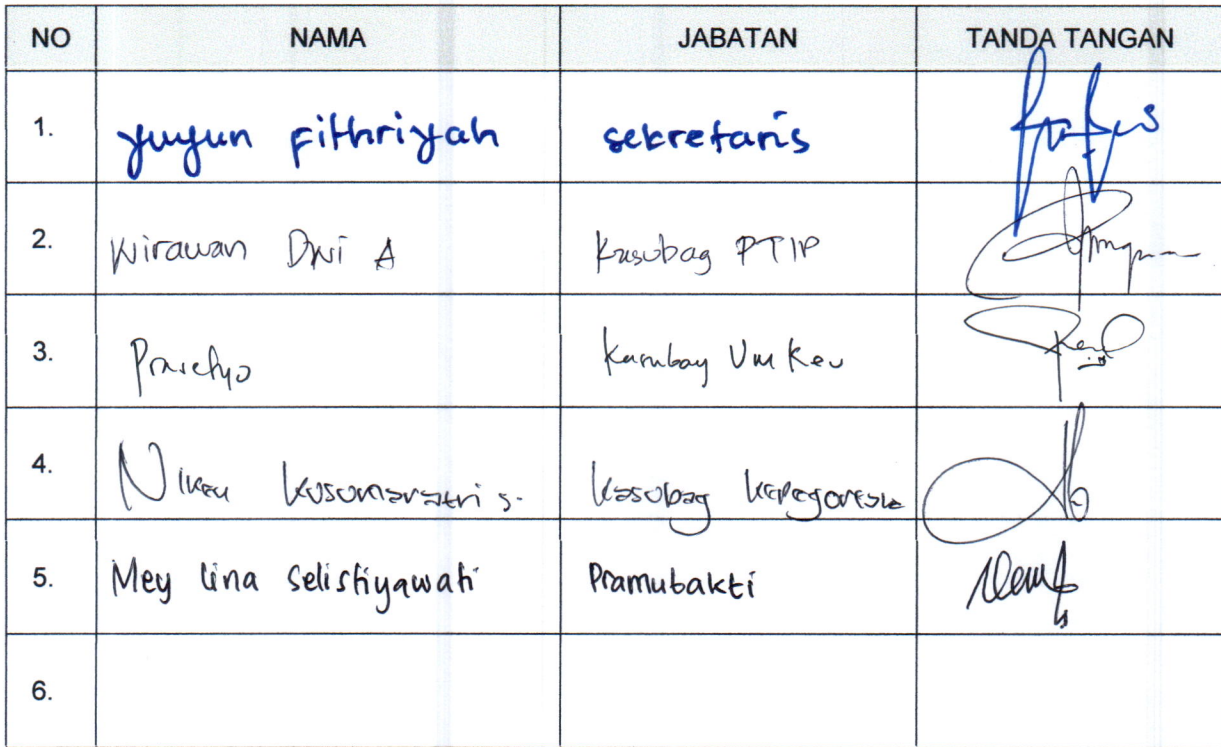 NO NAMA JABATAN TANDA TANGAN
1. yuyun fithriyah sekretaris
2. Wirawan Dwi A Kasubag PTIP
3. Prasetyo Kasubag Um Keu
4. Niken Kusumaratri s. Kasubag
5. Mey Lina Selistiyawati Pramubakti
6.